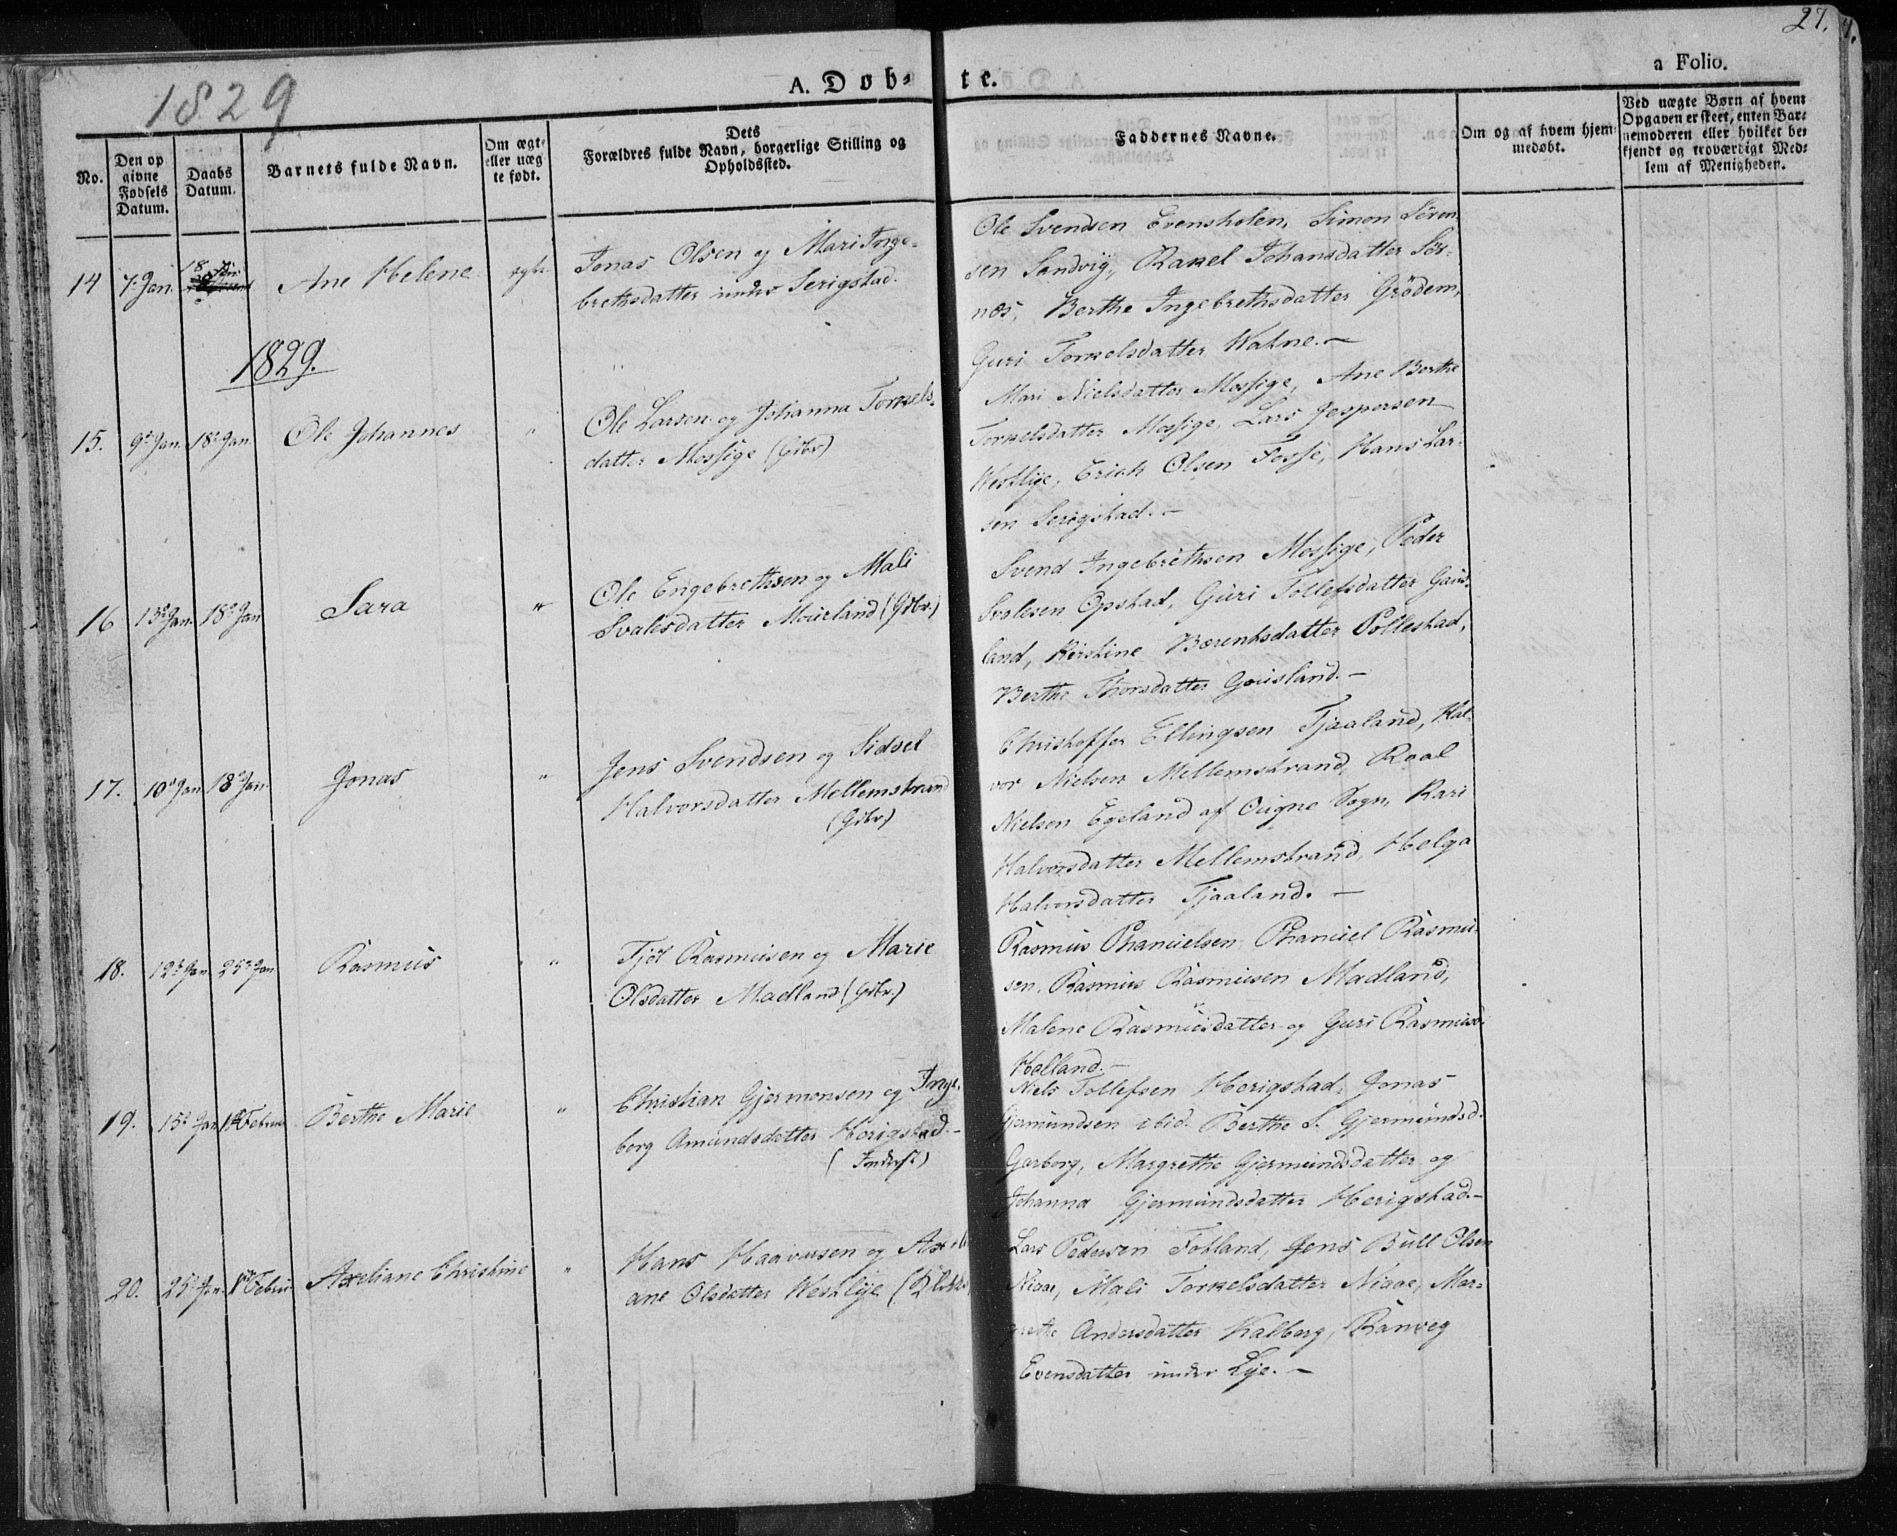 27.
1829
A. Døb- te.
a Folio.
No.
Den op
givne
Fødsels
Datum.
Daabs
Datum.
Barnets fulde Navn.
Om ægte
eller uæg
te født.
Dets
Forældres fulde Navn, borgerlige Stilling og
Opholdssted.
Faddernes Navne.
Om og af hvem hjem-
medøbt.
Ved uægte Børn af hvem
Opgaven er skeet, enten Bar-
nemoderen eller hvilket be-
kjendt og troværdigt Med-
lem af Menigheden.
14 7. Jan. 18 Jan Ane Helene ægte
Jonas Olsen og Mari Inge-
brethsdatter under Serigstad.
Ole Svendsen Evensholen, Simon Sören-
sen Sandvig, Rakel Johansdatter Sör-
næs, Berthe Ingebrethsdatter Grödem,
Guri Torkelsdatter Watne. —
1829.
15. 9de Jan. 18de Jan. Ole Johannes "
Ole Larsen og Johanna Torkels-
datter Mossige (Gdbr)
Mari Nielsdatter Mossige, Ane Berthe
Torkelsdatter Mossige, Lars Jespersen
Westlye, Erich Olsen Fosse, Hans Lar-
sen Serigstad. —
16 13de Jan. 18de Jan Sara "
Ole Engebrethsen og Mali
Svalesdatter Mourland (Gdbr.)
Svend Ingebrethsen Mossige, Peder
Svalesen Opstad, Guri Tollefsdatter Gaus-
land, Kirstine Bærentsdatter Pollestad,
Berthe Thorsdatter Gousland. —
17. 10de Jan 18de Jan. Jonas "
Jens Svendsen og Sidsel
Halvorsdatter Mellemstrand
(Gdbr)
Christoffer Ellingsen Tjaaland, Hal-
vor Nielsen Mellemstrand, Roal
Nielsen Egeland af Ougne Sogn, Kari
Halvorsdatter Mellemstrand, Helga
Halvorsdatter Tjaaland. —
18. 12de Jan 25de Jan Rasmus "
Tjöl Rasmusen og Marie
Olsdatter Madland (Gdbr.)
Rasmus Thanuelsen, Thanuel Rasmu-
sen, Rasmus Rasmusen Madland,
Malene Rasmusdatter og Guri Rasmusd.
Hølland. —
19. 15de Jan 1ste Februar Berthe Marie "
Christian Gjermonsen og Inge-
borg Amundsdatter Herigstad. —
(Inderst)
Niels Tollefsen Herigstad, Jonas
Gjermundsen ibid. Berthe S. Gjermundsd.
Garborg, Margrethe Gjermundsdatter og
Johanna Gjermundsdatter Herigstad. —
20. 25de Jan. 1ste Febru Axeliane Christine "
Hans Haavusen og Axeli
ane Olsdatter Westlye
Lars Pedersen Fotland, Jens Bull Olsen
Niaae, Mali Torkelsdatter Niaae, Mar-
grethe Andersdatter Kalberg, Ranveg
Evensdatter under Lye. —